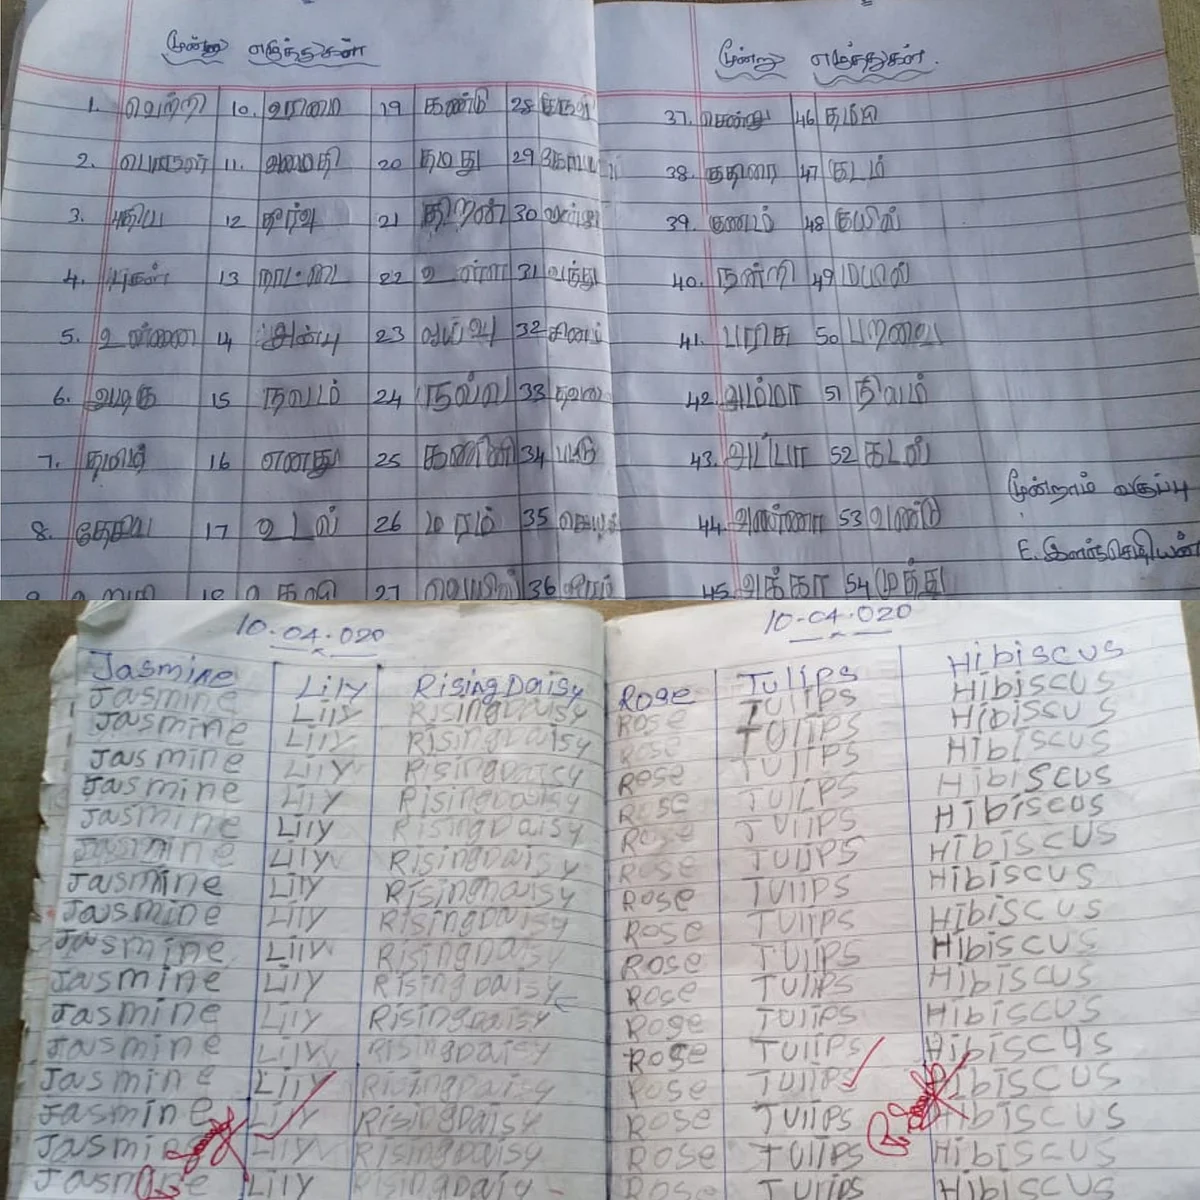 மூன்று எழுத்துகள்
1. வெற்றி 10. உரிமை 19 கண்டு 28
2. 11. அமைதி 20 தமது 29
3. புதிய 12 தீர்வு 21 திறன் 30
4. புகழ் 13 22 31 வந்து
5. உண்மை 14 அன்பு 23 ஆய்வு 32 சினம்
6. அழகு 15 நலம் 24 நல்ல 33 தலை
7. தமிழ் 16 எனது 25 கணினி 34
8. தேவை 17 உடல் 26 மரம் 35
18 உதவி 27 36
மூன்று எழுத்துகள்.
37. சென்று 46 தம்பி
38. குதிரை 47 குடம்
39. குணம் 48 குயில்
40. நன்றி 49 மயில்
41. பரிசு 50 பறவை
42. அம்மா 51 நிலம்
43. அப்பா 52 கடல்
44. அண்ணா 53 வண்டு
45. அக்கா 54 முத்து
மூன்றாம் வகுப்பு
E. இளஞ்செழியன்
10-04-020
Jasmine Lily RisingDaisy
Jasmine Lily RisingDaisy
Jasmine Lily RisingDaisy
Jasmine Lily RisingDaisy
Jasmine Lily RisingDaisy
Jasmine Lily RisingDaisy
Jasmine Lily RisingDaisy
Jasmine Lily RisingDaisy
Jasmine Lily RisingDaisy
Jasmine Lily RisingDaisy
Jasmine Lily RisingDaisy
Jasmine Lily RisingDaisy
Jasmine Lily RisingDaisy
Jasmine Lily RisingDaisy
Jasmine Lily RisingDaisy
Jasmine Lily RisingDaisy
Jasmine Lily RisingDaisy
10-04-020
Rose Tulips Hibiscus
Rose Tulips Hibiscus
Rose Tulips Hibiscus
Rose Tulips Hibiscus
Rose Tulips Hibiscus
Rose Tulips Hibiscos
Rose Tulips Hibiscus
Rose Tulips Hibiscus
Rose Tulips Hibiscus
Rose Tulips Hibiscus
Rose Tulips Hibiscus
Rose Tulips Hibiscus
Rose Tulips Hibiscus
Rose Tulips Hibiscus
Rose Tulips Hibiscus
Rose Tulips Hibiscus
Rose Tulips Hibiscus